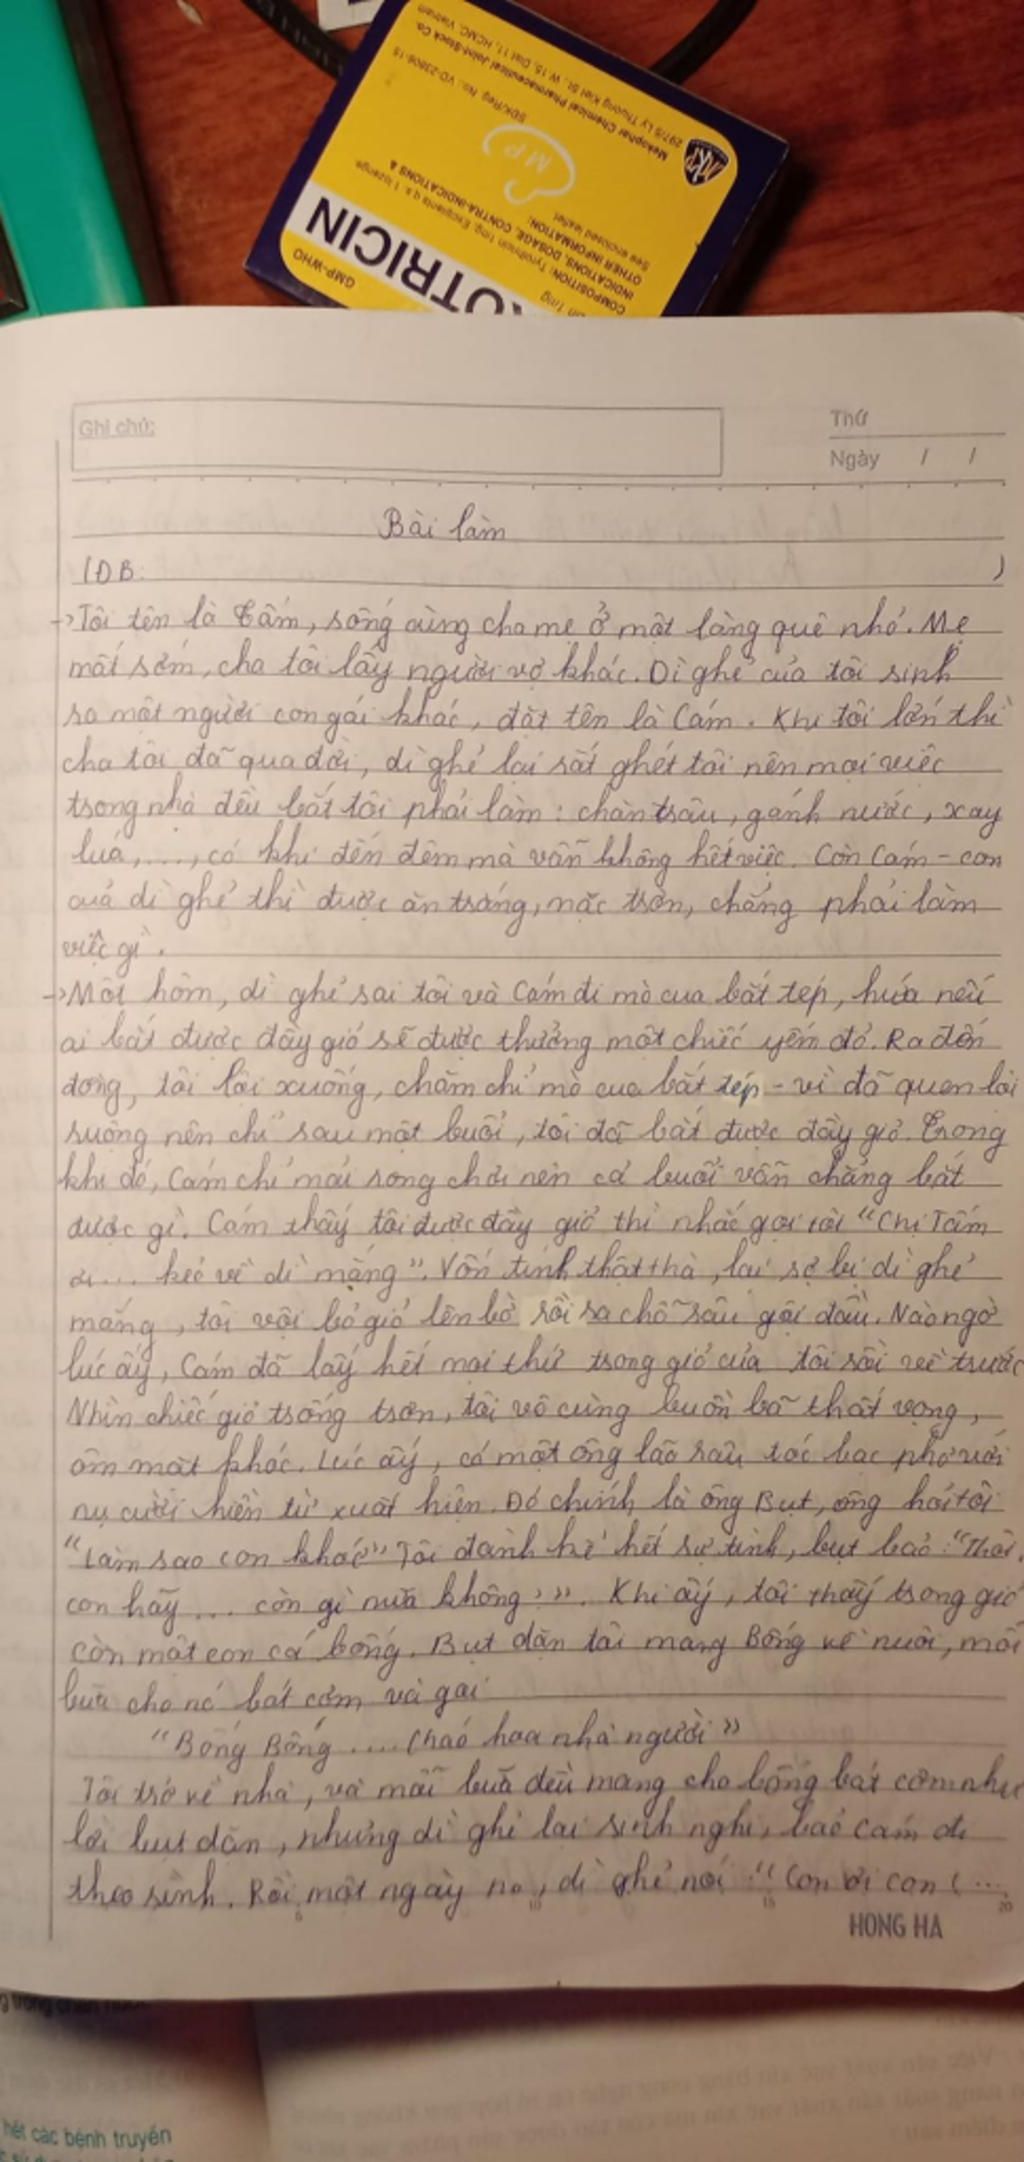 297/5 Ly Thuong Kiet St., W.15, Dist 11, HCMC, Vietnam
Mekophar Chemical Pharmaceutical Joint-Stock Co.
SĐK/Reg. No.: VD-23806-15
MKP
MP
See enclosed leaflet.
OTHER INFORMATION:
INDICATIONS, DOSAGE, CONTRA-INDICATIONS &
COMPOSITION: Tyrothricin 1mg, Excipients q.s. 1 lozenge
GMP-WHO
OTRICIN
1mg
Ghi chú:
Thứ
Ngày / /
Bài làm
(ĐB: )
->Tôi tên là Tấm, sống cùng cha mẹ ở một làng quê nhỏ. Mẹ
mất sớm, cha tôi lấy người vợ khác. Dì ghẻ của tôi sinh
ra một người con gái khác, đặt tên là Cám. Khi tôi lớn thì
cha tôi đã qua đời, dì ghẻ lại rất ghét tôi nên mọi việc
trong nhà đều bắt tôi phải làm: chăn trâu, gánh nước, xay
lúa,...., có khi đến đêm mà vẫn không hết việc. Còn Cám - con
của dì ghẻ thì được ăn trắng, mặc trơn, chẳng phải làm
việc gì.
->Một hôm, dì ghẻ sai tôi và Cám đi mò cua bắt tép, hứa nếu
ai bắt được đầy giỏ sẽ được thưởng một chiếc yếm đỏ. Ra đến
đồng, tôi lội xuống, chăm chỉ mò cua bắt tép - vì đã quen lội
ruộng nên chỉ sau một buổi, tôi đã bắt được đầy giỏ. Trong
khi đó, Cám chỉ mải rong chơi nên cả buổi vẫn chẳng bắt
được gì. Cám thấy tôi được đầy giỏ thì nhắc gọi tôi "Chị Tấm
ơi... kẻo về dì mắng". Vốn tính thật thà, lại sợ bị dì ghẻ
mắng, tôi vội bỏ giỏ lên bờ rồi ra chỗ sâu gội đầu. Nào ngờ
lúc ấy, Cám đã lấy hết mọi thứ trong giỏ của tôi rồi về trước
Nhìn chiếc giỏ trống trơn, tôi vô cùng buồn bã thất vọng,
ôm mặt khóc. Lúc ấy, có một ông lão râu tóc bạc phơ với
nụ cười hiền từ xuất hiện. Đó chính là ông Bụt, ông hỏi tôi
"Làm sao con khóc" Tôi đành kể hết sự tình, bụt bảo: "Thôi,
con hãy ... còn gì nữa không?". Khi ấy, tôi thấy trong giỏ
còn một con cá bống. Bụt dặn tôi mang Bống về nuôi, mỗi
bữa cho nó bát cơm và gọi
"Bống Bống .... cháo hoa nhà người"
Tôi trở về nhà, và mỗi bữa đều mang cho bống bát cơm như
lời bụt dặn, nhưng dì ghẻ lại sinh nghi, bảo cám đi
theo rình. Rồi một ngày nọ, dì ghẻ nói: "Con ơi con (...
5 10 15 20
HONG HA
hết các bệnh truyền